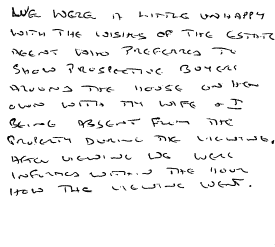 WE WERE A LITTLE UNHAPPY
WITH THE WISHES OF THE ESTATE
AGENT WHO PREFERRED TO
SHOW PROSPECTIVE BUYERS
AROUND THE HOUSE ON HER
OWN WITH MY WIFE & I
BEING ABSENT FROM THE
PROPERTY DURING THE VIEWING.
AFTER VIEWING WE WERE
INFORMED WITHIN THE HOUR
HOW THE VIEWING WENT.